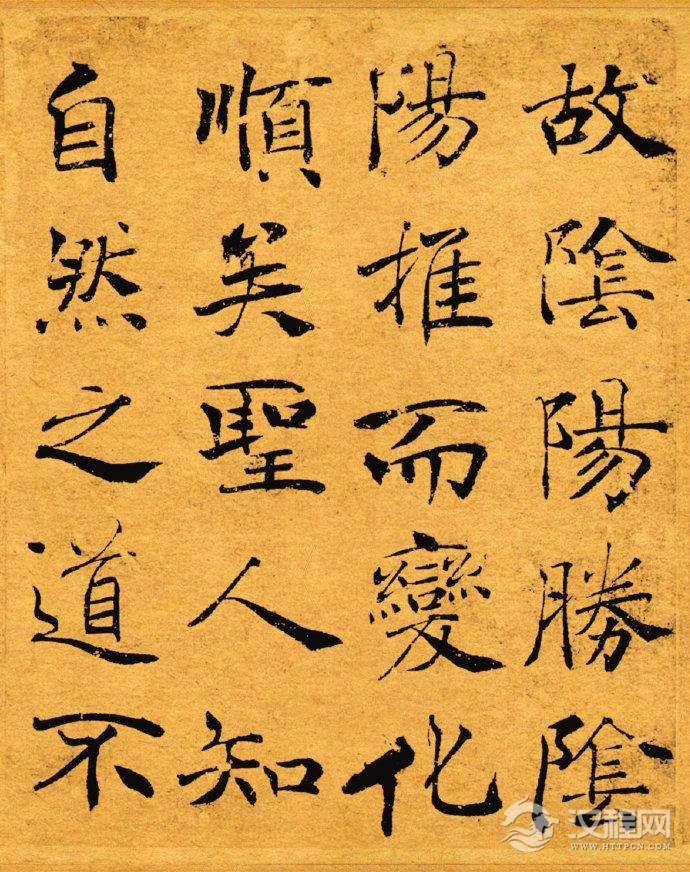 故陰陽勝陰
陽推而變化
順矣聖人知
自然之道不
汉程网
WWW.HTTPCN.COM